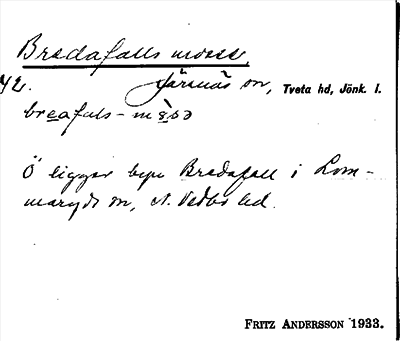 Bredafalls mosse,
42. Järsnäs sn, Tveta hd, Jönk. l.
breafals-mȯsə
Ö ligger byn Bredafall i Lom-
maryds sn, N. Vedbo hd.
FRITZ ANDERSSON 1933.